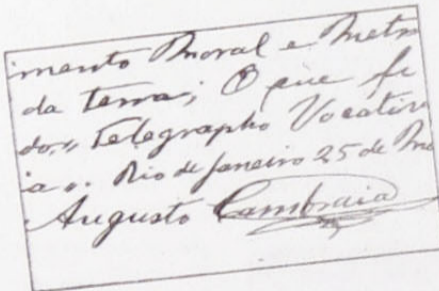 mento Moral e Metr
da terra; O que fi
do, „ Telegrapho Vocativo
a „. Rio de Janeiro 25 de Ma
Augusto Cambraia